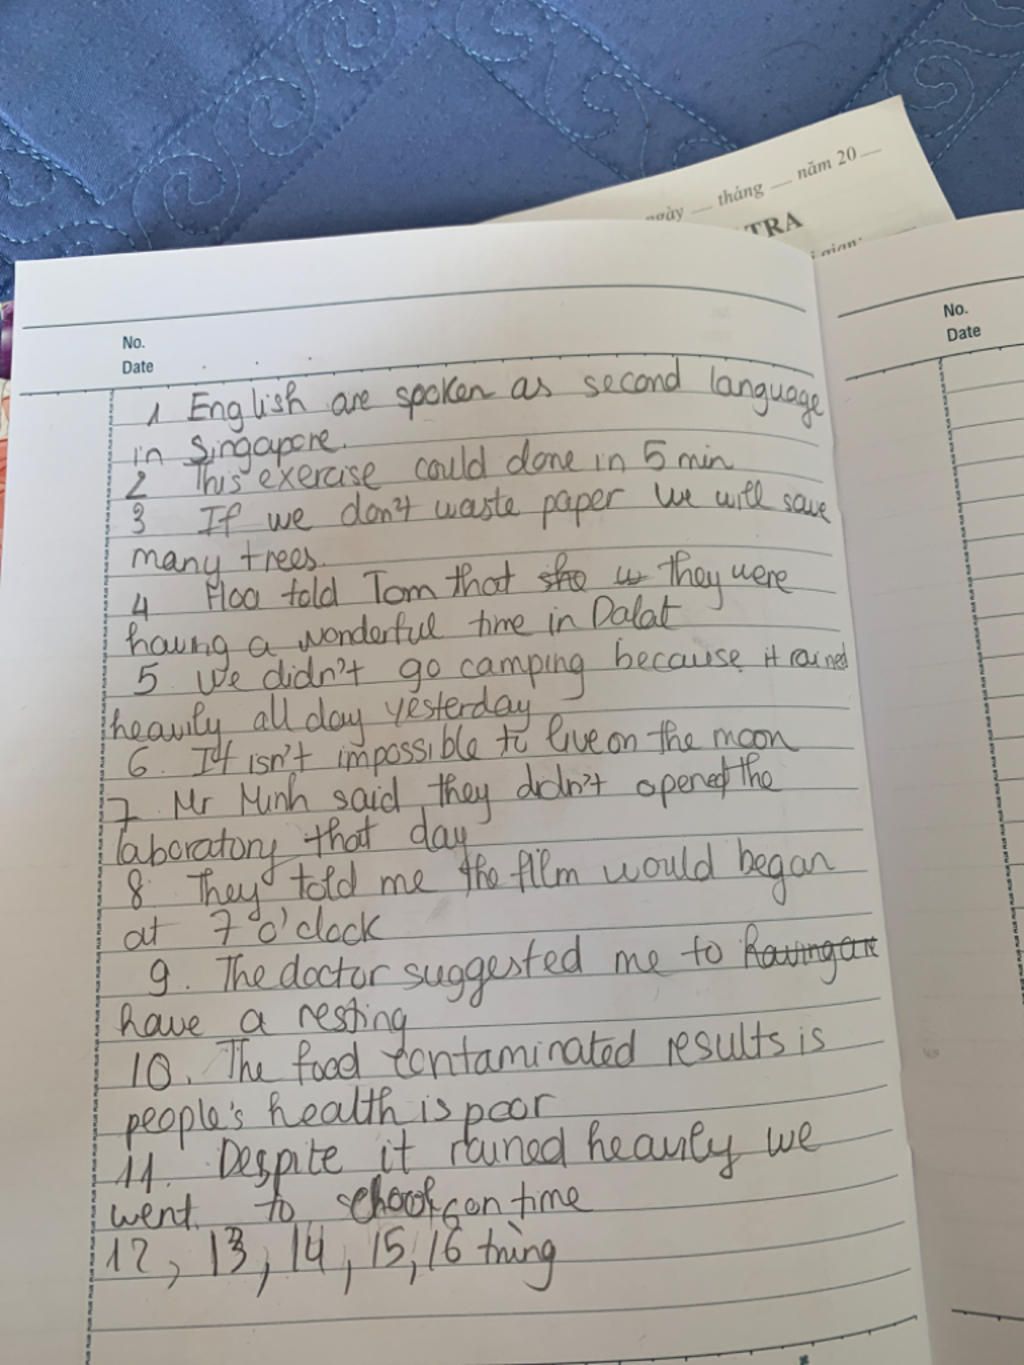 ngày __ tháng __ năm 20__
TRA
gian:
No.
Date
No.
Date
1 English are spoken as second language
in Singapore.
2 This exercise could done in 5 min
3 If we don't waste paper we will save
many trees.
4 Hoa told Tom that she w they were
having a wonderful time in Dalat
5 We didn't go camping because it rained
heavily all day yesterday
6. It isn't impossible to live on the moon
7 Mr Minh said they didn't opened the
laboratory that day
8 They told me the film would began
at 7 o'clock
9. The doctor suggested me to having are
have a resting
10. The food contaminated results is
people's health is poor
11. Despite it rained heavily we
went to school on time
12, 13, 14, 15, 16 trùng